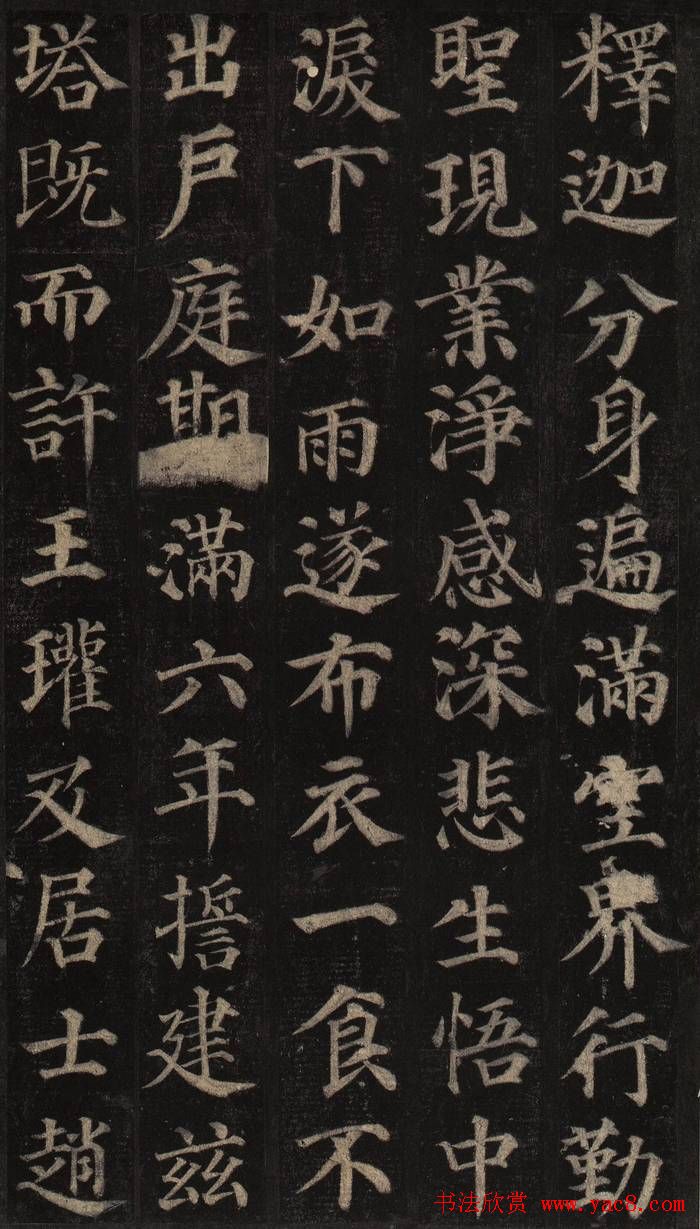 釋迦分身遍滿空界行勤
聖現業淨感深悲生悟中
淚下如雨遂布衣一食不
出戶庭期滿六年誓建兹
塔既而許王瓘及居士趙
书法欣赏 www.yac8.com